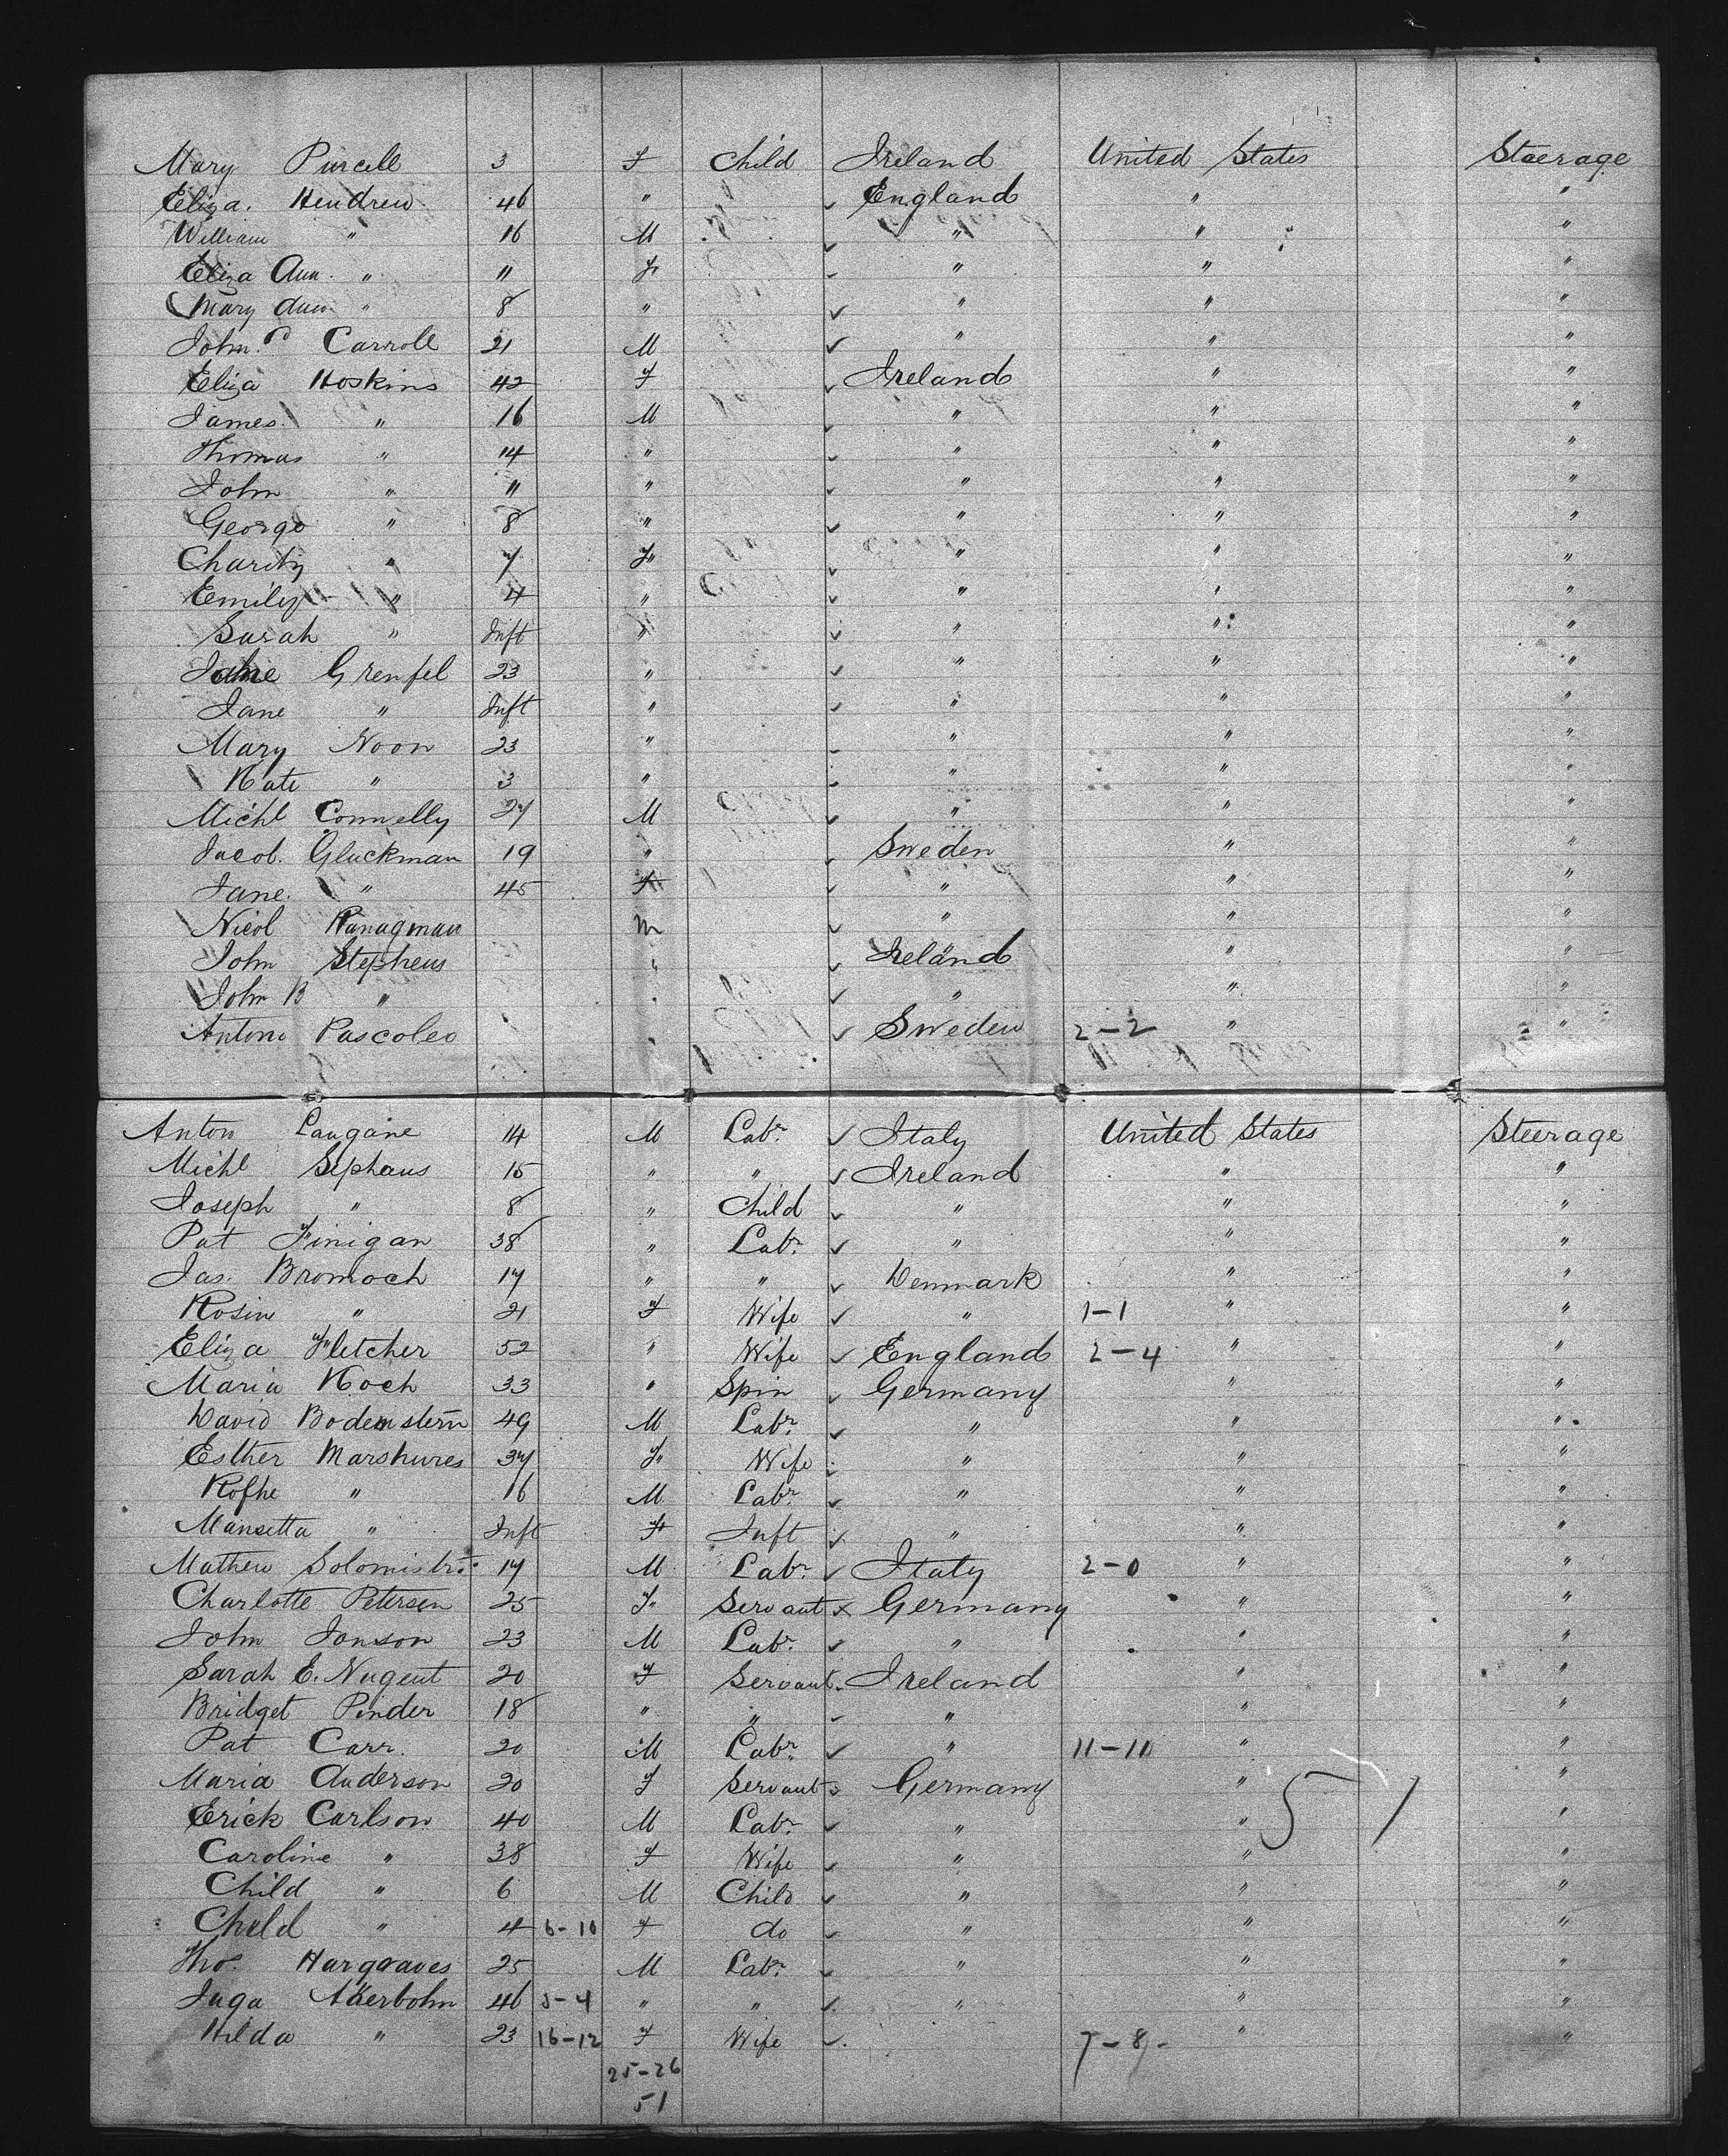 Mary Purcell 3 F Child Ireland United States Steerage
Eliza. Hendrew 46 " England " "
William " 16 M " " "
Eliza Ann " 11 F " " "
Mary Ann " 8 " " " "
John P Carroll 21 M " " "
Eliza Hoskins 42 F Ireland " "
James " 16 M " " "
Thomas " 14 " " " "
John " 11 " " " "
George " 8 " " " "
Charity " 7 F " " "
Emily " 4 " " " "
Sarah " Inft " " " "
Jane Grenfel 23 " " " "
Jane " Inft " " " "
Mary Noon 23 " " " "
Kate " 3 " " " "
Michl Connelly 27 M " " "
Jacob. Gluckman 19 " Sweden " "
Jane. " 45 F " " "
Nicol M " " "
John Stephens " Ireland " "
John B " " " " "
Antoni Pascoleo " Sweden 2-2 " "
Anton Laugane 14 M Labr. Italy United States Steerage
Michl Sephaus 15 " " Ireland " "
Joseph " 8 " Child " " "
Pat Finigan 38 " Labr. " " "
Jas. Bromoch 17 " " Denmark " "
Rosine " 21 F Wife " 1-1 " "
Eliza Fletcher 52 " Wife England 2-4 " "
Maria Koch 33 " Spin Germany " "
David Bodenstern 49 M Labr. " " "
Esther Marshures 37 F Wife " " "
" 16 M Labr. " " "
Mansetta " Inft F Inft " " "
Mathew 17 M Labr. Italy 2-0 " "
Charlotte Petersen 25 F Servant Germany " "
John Jonson 23 M Labr. " " "
Sarah E. Nugent 20 F Servant Ireland " "
Bridget Pinder 18 " " " " "
Pat Carr. 20 M Labr. " 11-10 " "
Maria Anderson 20 F Servant Germany " "
Erick Carlson 40 M Labr. " " 51 "
Caroline " 38 F Wife " " "
Child " 6 M Child " " "
Child " 4 6-10 F do " " "
Tho. Hargraves 25 M Labr. " " "
Inga Akerbohm 46 5-4 " " " " "
Hilda " 23 16-12 F Wife 7-8- " "
25-26
51